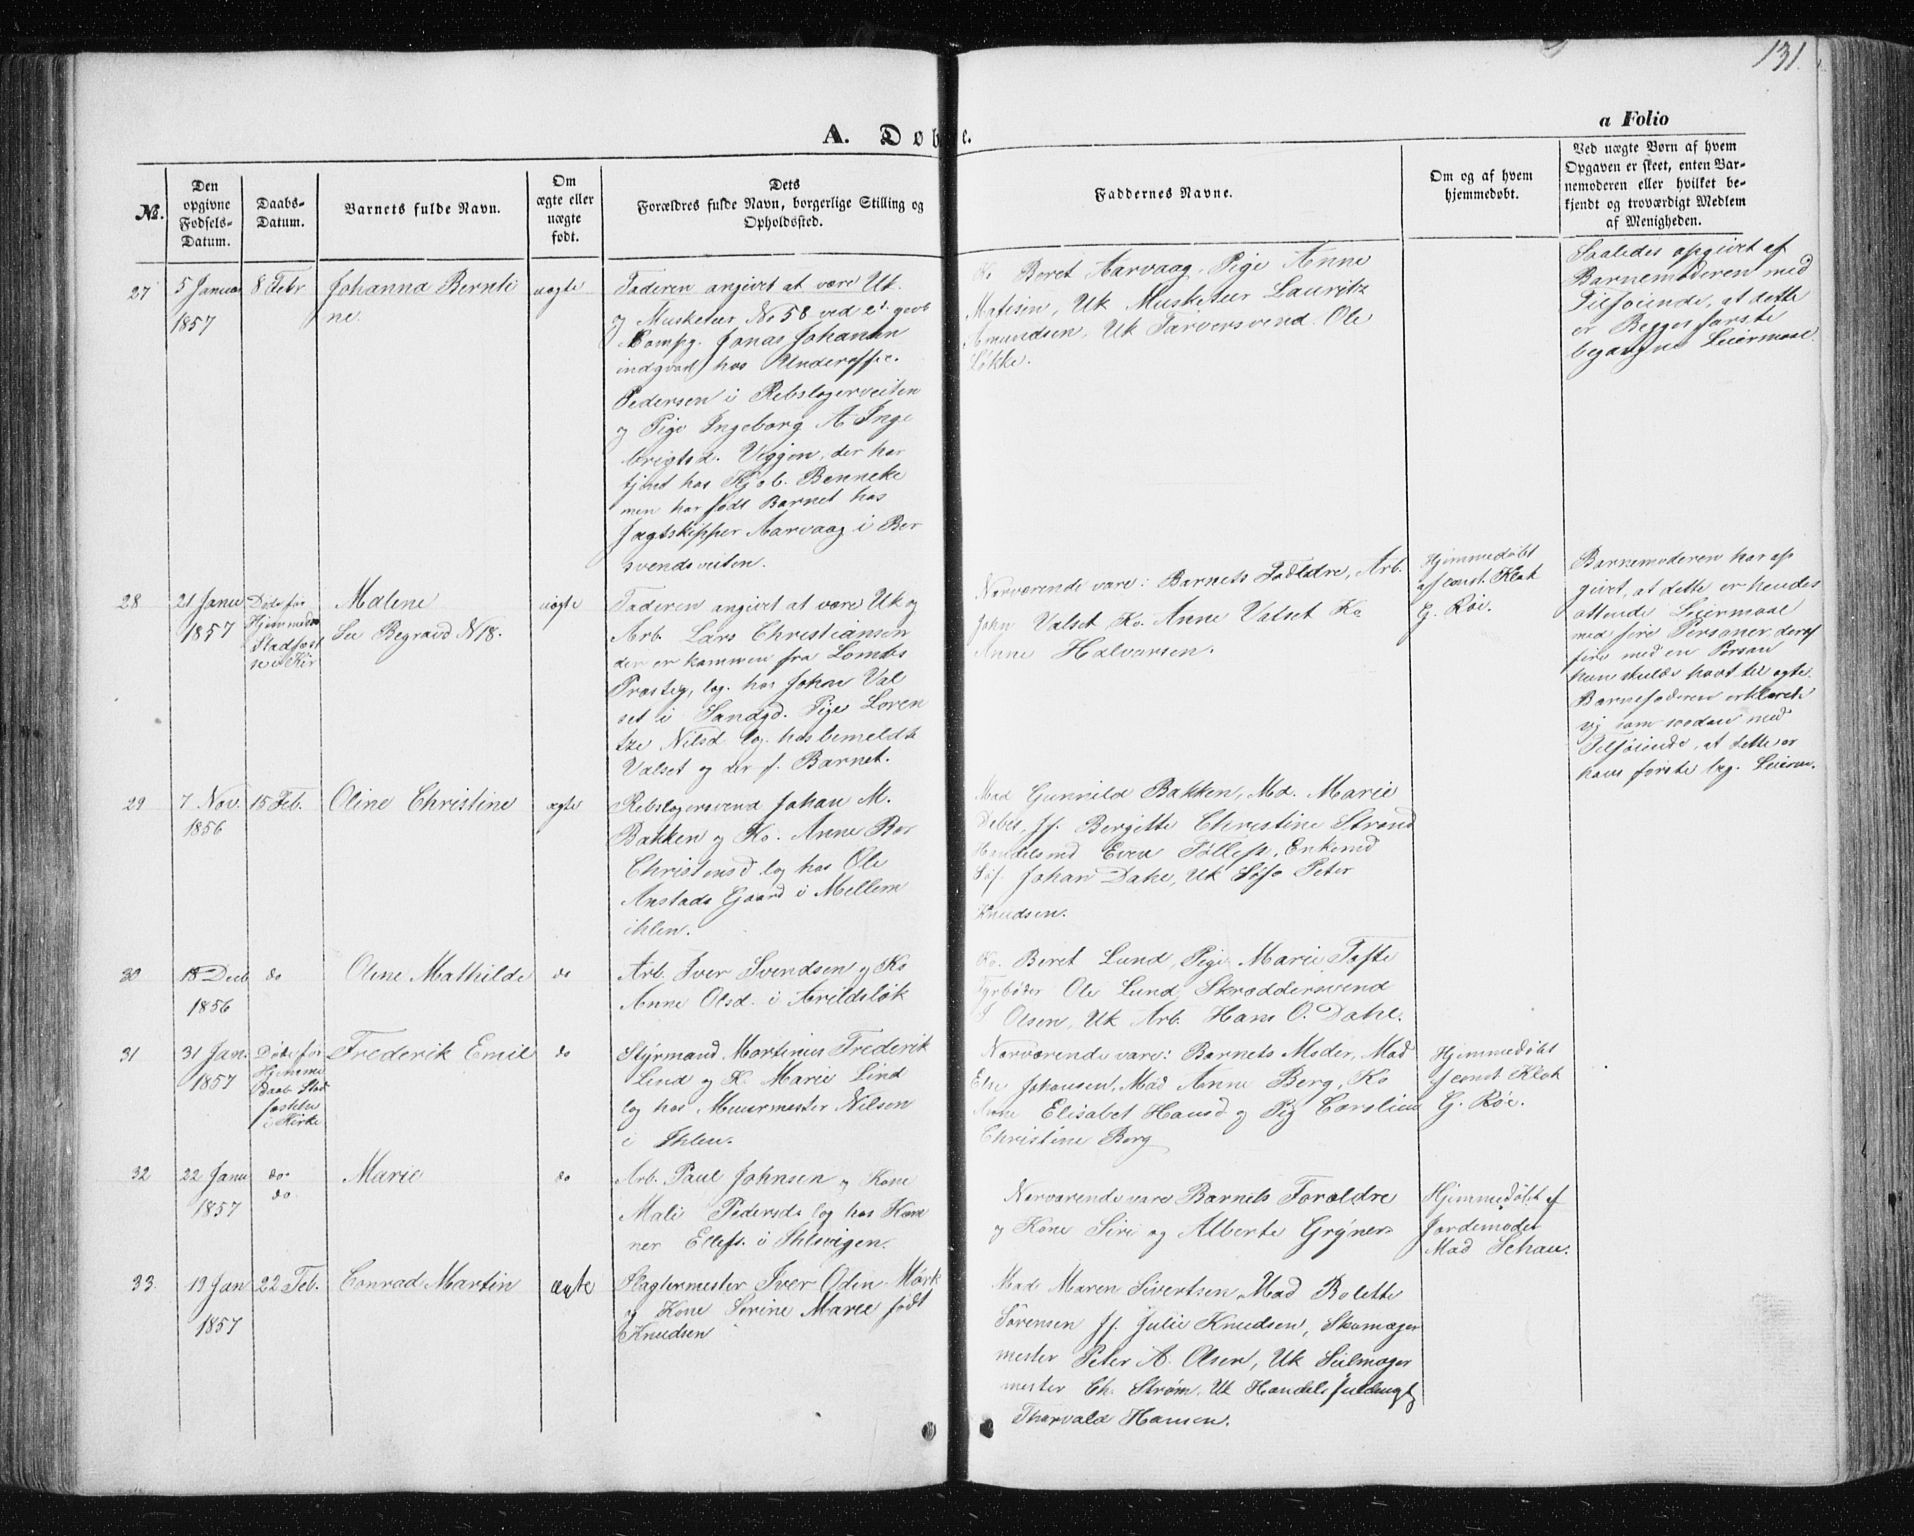 131.
A. Døbte.
a Folio
No.
Den opgivne Fødsels-Datum.
Daabs-Datum.
Barnets fulde Navn.
Om ægte eller uægte født.
Dets Forældres fulde Navn, borgerlige Stilling og Opholdssted.
Faddernes Navne.
Om og af hvem hjemmedøbt.
Ved uægte Børn af hvem
Opgaven er skeet, enten Bar-
nemoderen eller hvilket be-
kjendt og troværdigt Medlem
af Menigheden.
27
5 Januar
1857
8 Febr
Johanna Bernti
ne.
uægte
Faderen angivet at være Uk.
og Musketeer No 58 ved 2d. gevb
Compg. Jonas Johansen
indqvart hos Underoffic.
Pedersen i Rebslagerveiten
og Pige Ingeborg A. Inge
brigtsd. Viggen, der har
tjent hos Kjøb. Benneke
men har født Barnet hos
Jagtskipper Aarvaag i Ber
svendsveiten.
Ko Beret Aarvaag, Pige Anne
Matisen, Uk Musketeer Lauritz
Amundsen, Uk Farversvend Ole
Løkke.
Saaledes opgivet af
Barnemoderen med
Tilføiende, at dette
er Begges første
begangne Leiermaal.
28
21 Janu
1857
Døde før
Hjemmed
Stadfæst
se i Kir
Malene
See Begravd N 18.
uægte
Faderen angivet at være Uk og
Arb. Lars Christiansen
der er kommen fra Lombs
Præsteg, log. hos John Val
set i Sandgd. Pige Loren
tze Nilsd log. hos bemeldte
Valset og der f. Barnet.
Nærværende vare: Barnets Forældre, Arb.
John Valset Ko. Anne Valset Ko
Anne Halvorsen.
Hjemmedøbt
af const. Klok
G. Røe.
Barnemoderen har op
givet, at dette er hendes
ottende Leiermaal
med fire Personer, deraf
fire med en Person
hun skulde havt til ægte.
Barnefaderen erklærede
sig som saadan med
Tilføiende, at dette er
hans første beg. Leierm.
29
7 Nov.
1856
15 Feb.
Oline Christine
ægte
Rebslagersvend Johan M.
Bakken og Ko. Anne Ber
Christensd log hos Ole
Anstads Gaard i Mellem
ihlen.
Mad Gunnild Bakken, Md. Marie
Debes, Jf. Bergitte Christine Strand
Handelsmd Even Tøllefs, Enkemd
Søf. Johan Dahl, Uk Søfo Peter
Knudsen.
30
18 Deeb
1856
do
Oline Mathilde
do
Arb. Iver Svendsen og Ko
Anne Olsd. i Arildsløk
Ko. Beret Lund, Pige Marie Tofte
Fyrbøder Ole Lund, Skræddersvend
Olsen, Uk Arb. Hans O. Dahl.
31
31 Jan.
1857
Døde før
Hjemme
daab Stad
fæstelse
i Kirke
Frederik Emil
do
Styrmand Martinus Frederik
Lind og K. Marie Lind
log hos Muurmester Nilsen
i Ihlen.
Nærværende vare: Barnets Moder, Mad
Else Johansen, Mad Anne Berg, Ko
Anne Elisabet Hansd og Pig Caroline
Christine Berg
Hjemmedøbt
af const. Klok
G. Røe.
32
22 Janu
1857
do
do
Marie
do
Arb. Paul Johnsen og Kone
Mali Pedersd. log hos Kar
ner Ellefs. i Ihlsvigen.
Nærværende vare Barnets Forældre
og Kone Siri og Alberte Gryner
Hjemmedøbt af
Jordemoder
Mad Schau.
33.
19 Jan
1857
22 Feb.
Conrad Martin
ægte
Slagtermester Iver Odin Mørk
og Kone Serine Marie født
Knudsen
Mad Maren Sivertsen, Mad Bolette
Sørensen Jf. Julie Knudsen, Skomager
mester Peter A. Olsen, Uk Seilmager
mester Ch. Strøm, Uk Handelsfuldmægt
Thorvald Hansen.